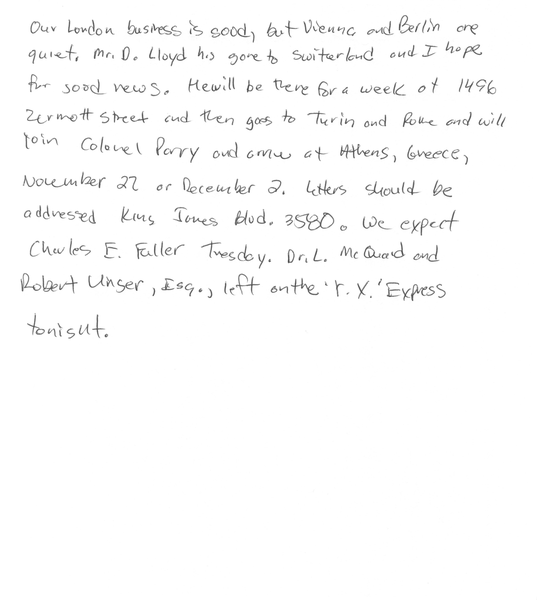 Our London business is good, but Vienna and Berlin are
quiet. Mr. D. Lloyd his gone to Switerland and I hope
for good news. He will be there for a week at 1496
Zermott Street and then goes to Turin and Rome and will
join Colonel Parry and arrive at Athens, Greece,
November 27 or December 2. Letters should be
addressed King James Blvd. 3580. We expect
Charles E. Fuller Tuesday. Dr. L. McQuaid and
Robert Unger, Esq., left on the 'Y. X.' Express
tonight.